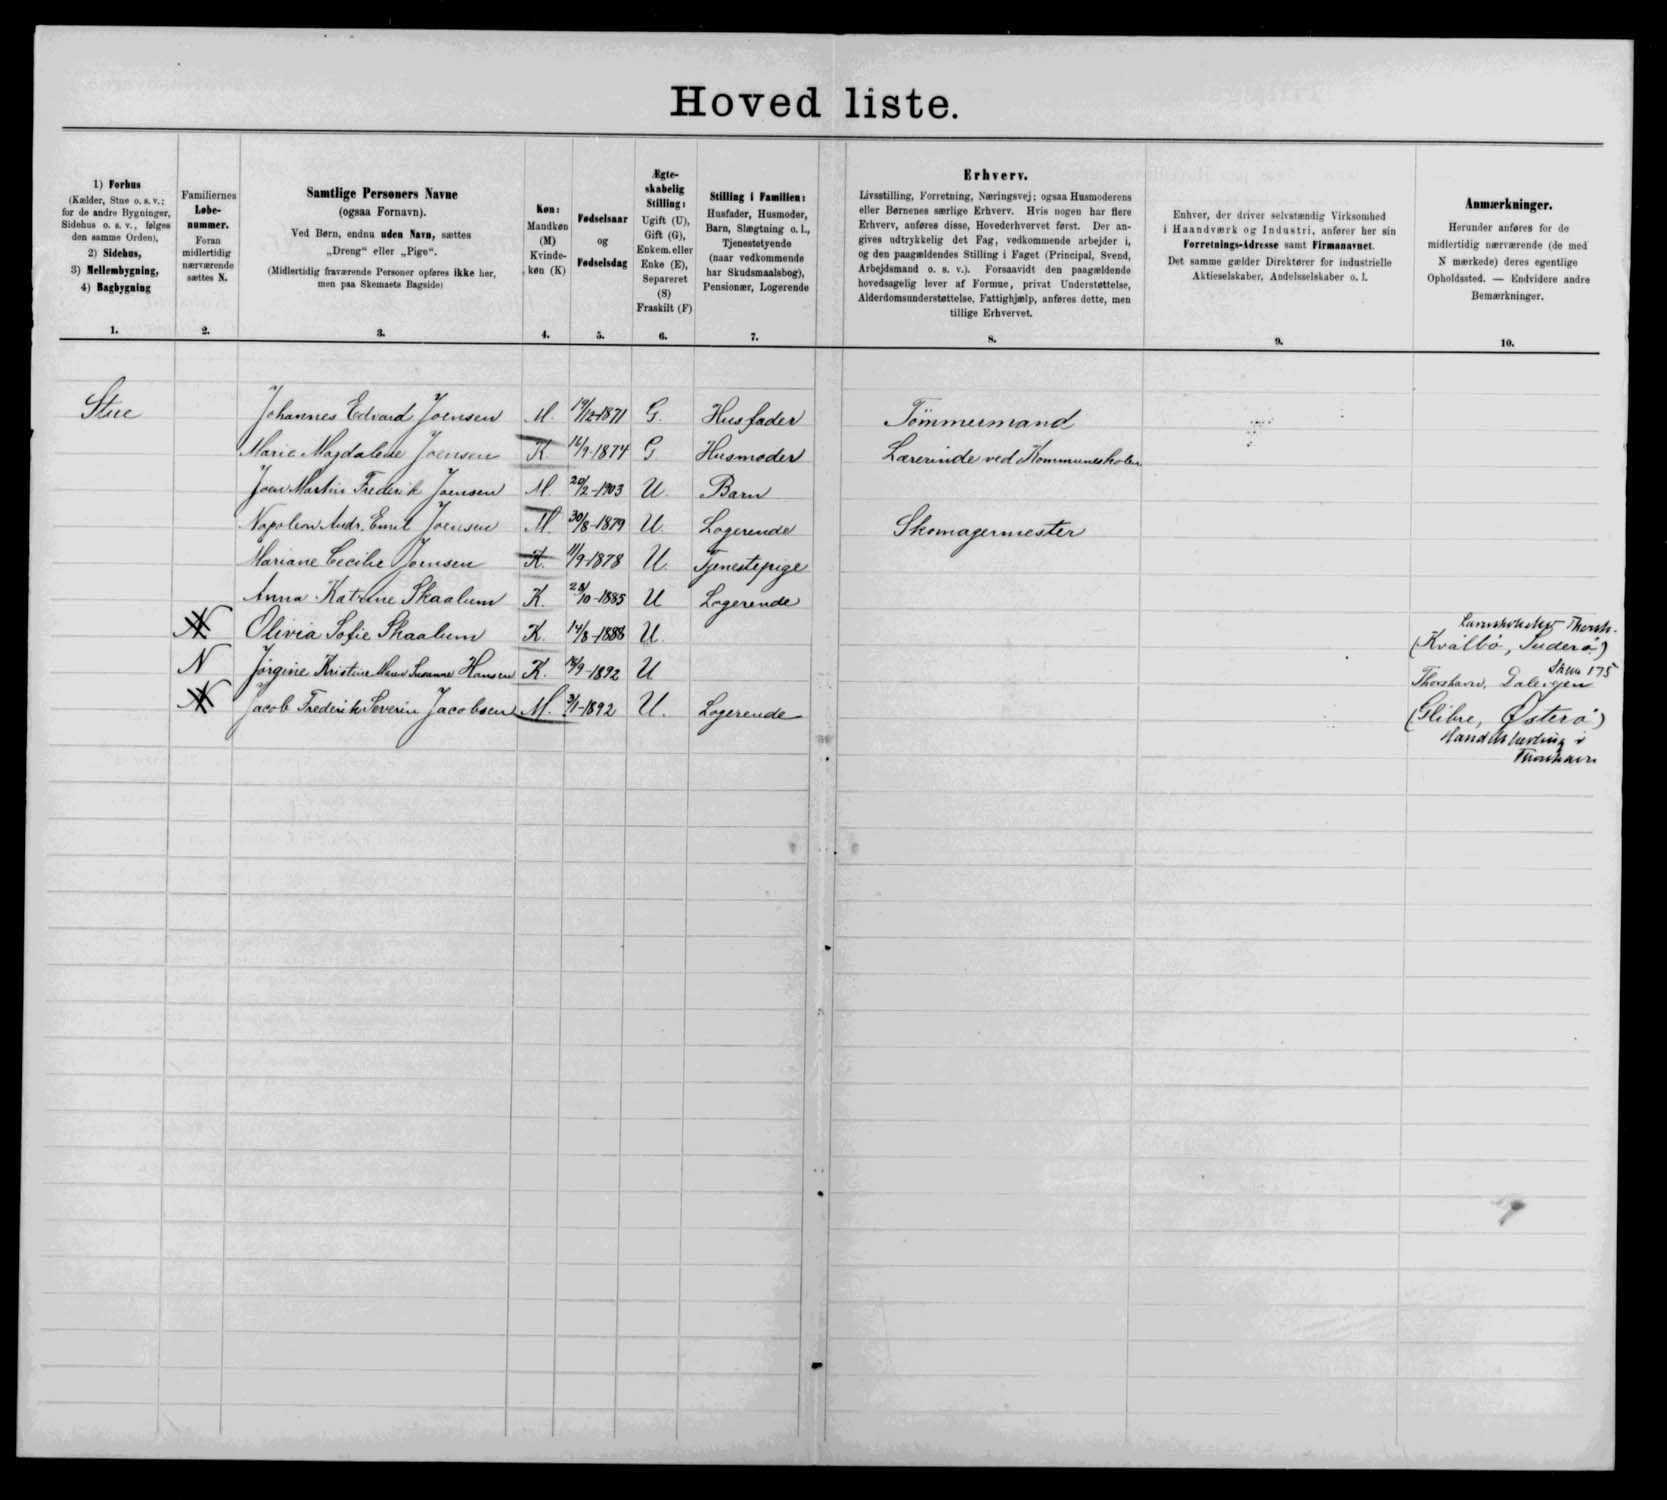 Hovedliste.
1) Forhus
(Kælder, Stue o. s. v.;
for de andre Bygninger,
Sidehus o. s. v., følges
den samme Orden),
2) Sidehus,
3) Mellembygning,
4) Bagbygning
1.
Familiernes
Løbe-
nummer.
Foran
midlertidig
nærværende
sættes N.
2.
Samtlige Personers Navne
(ogsaa Fornavn).
Ved Børn, endnu uden Navn, sættes
„Dreng“ eller „Pige“.
(Midlertidig fraværende Personer opføres ikke her,
men paa Skemaets Bagside)
3.
Køn:
Mandkøn
(M)
Kvinde-
køn (K)
4.
Fødselsaar
og
Fødselsdag
5.
Ægte-
skabelig
Stilling:
Ugift (U),
Gift (G),
Enkem. eller
Enke (E),
Separeret
(S)
Fraskilt (F)
6.
Stilling i Familien:
Husfader, Husmoder,
Barn, Slægtning o. l.,
Tjenestetyende
(naar vedkommende
har Skudsmaalsbog),
Pensionær, Logerende
7.
Erhverv.
Livsstilling, Forretning, Næringsvej; ogsaa Husmoderens
eller Børnenes særlige Erhverv. Hvis nogen har flere
Erhverv, anføres disse, Hovederhvervet først. Der an-
gives udtrykkelig det Fag, vedkommende arbejder i,
og den paagældendes Stilling i Faget (Principal, Svend,
Arbejdsmand o. s. v.). Forsaavidt den paagældende
hovedsagelig lever af Formue, privat Understøttelse,
Alderdomsunderstøttelse, Fattighjælp, anføres dette, men
tillige Erhvervet.
8.
Enhver, der driver selvstændig Virksomhed
i Haandværk og Industri, anfører her sin
Forretnings-Adresse samt Firmanavnet.
Det samme gælder Direktører for industrielle
Aktieselskaber, Andelsselskaber o. l.
9.
Anmærkninger.
Herunder anføres for de
midlertidig nærværende (de med
N mærkede) deres egentlige
Opholdssted. — Endvidere andre
Bemærkninger.
10.
Stue Johannes Edvard Joensen M. 19/12-1871 G. Husfader Tömmermand
Marie Magdalene Joensen K. 16/9-1874 G Husmoder Lærerinde ved Kommuneskolen
Joen Martin Frederik Joensen M. 20/2-1903 U. Barn
Napoleon Andr. Emil Joensen M. 30/8-1879 U. Logerende Skomagermester
Mariane Cecilie Joensen K. 11/9-1878 U. Tjenestepige
Anna Katrine Skaalum K. 28/10-1885 U Logerende
Thorsh.
N Olivia Sofie Skaalum K. 14/8-1888 U. (Kvalbö, Suderö)
Skema 175
N Jørgine Kristine Maren Susanne Hansen K. 18/9-1892 U Thorshavn, Dalevejen
N Jacob Frederik Severin Jacobsen M. 3/1-1892 U. Logerende (Glibre, Østerö)
Handelslærling i
Thorshavn